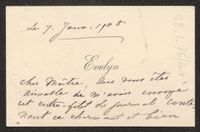 Le 7. Janv. 1908
Evelyn
Cher Maître. Que vous êtes
aimable de m'avoir envoyé
cet entre-filet de journal conte
nant ce charmant et bien